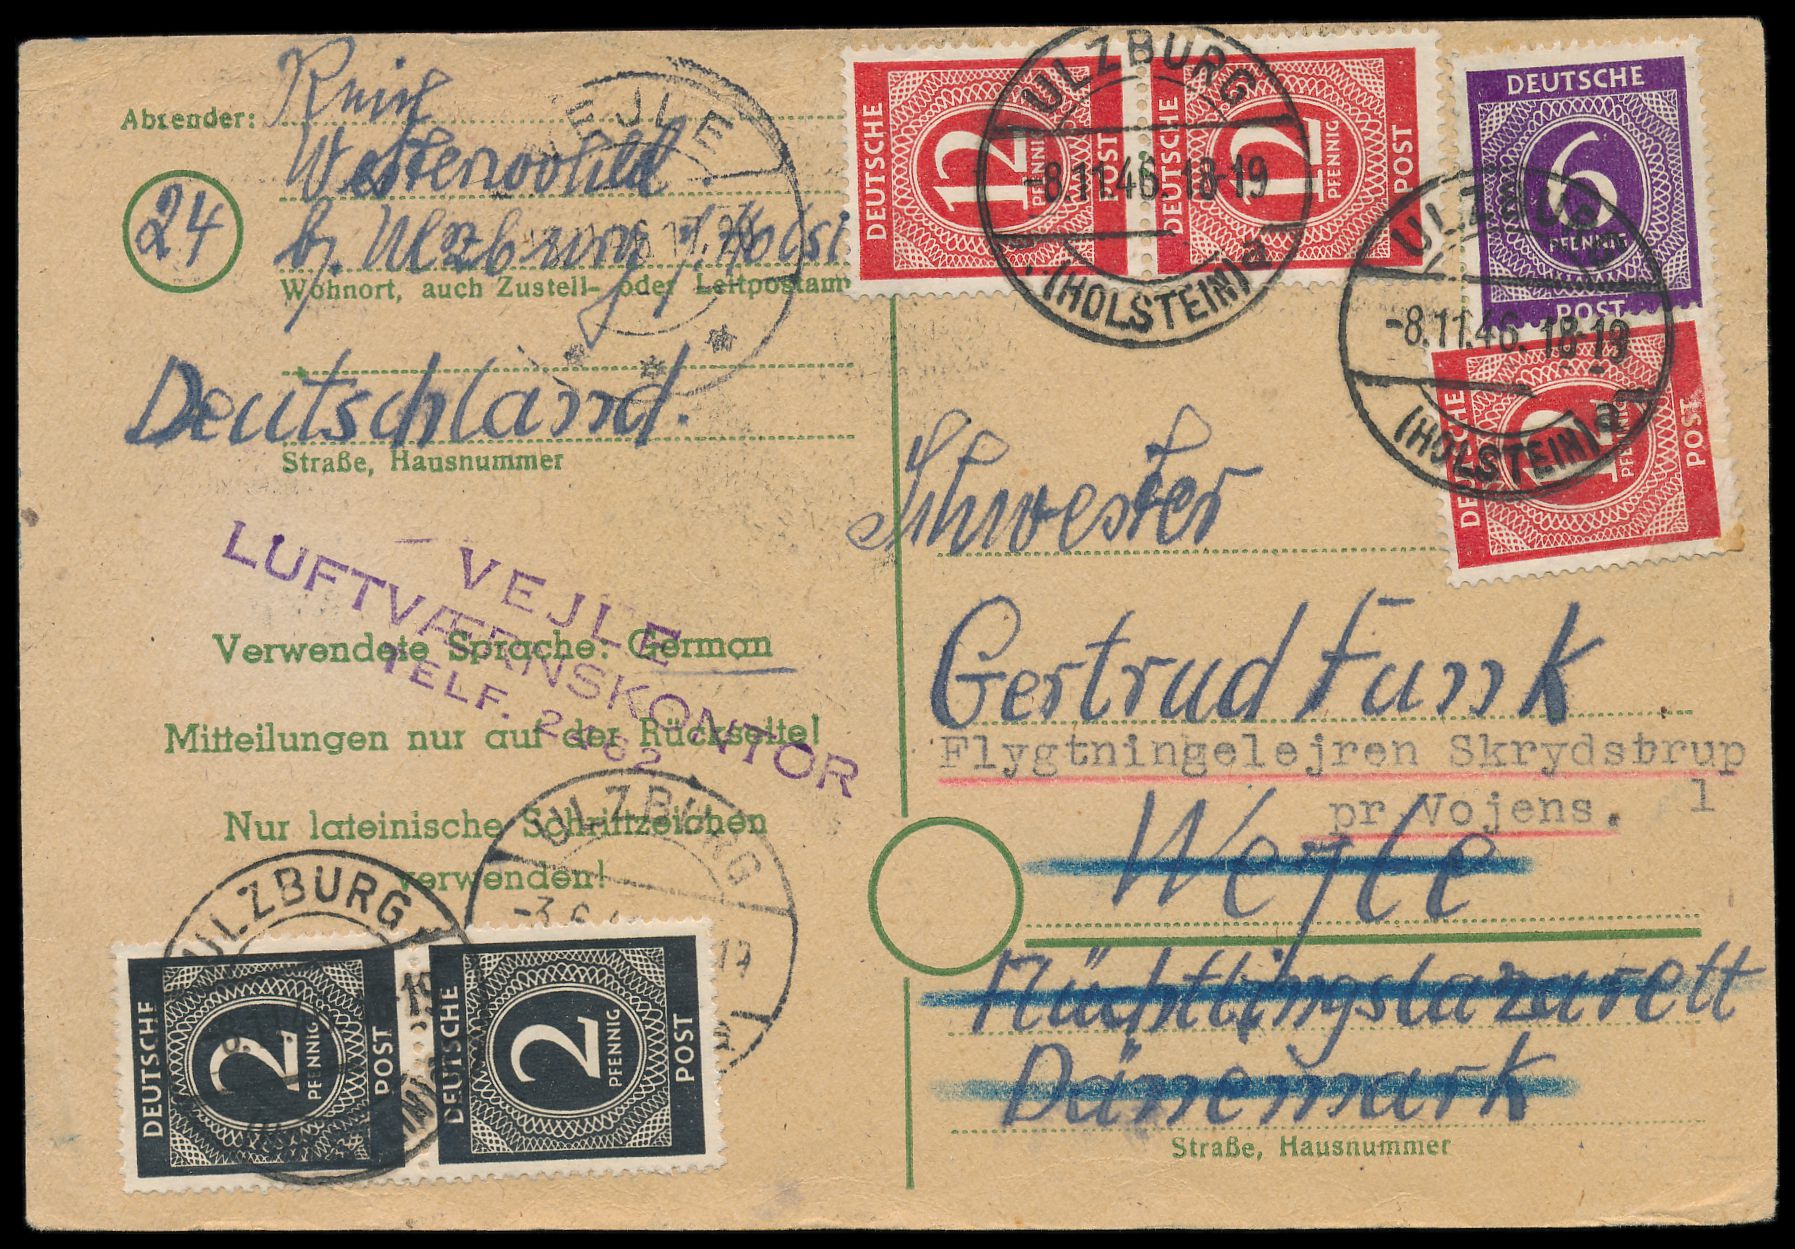 Absender:
Westerwohld
24 bj. Ulzburg i. Holst
Wohnort, auch Zustell- oder Leitpostamt
Deutschland.
Straße, Hausnummer
VEJLE
LUFTVÆRNSKONTOR
TELF.
Verwendete Sprache: German
Mitteilungen nur auf der Rückseite!
Nur lateinische Schriftzeichen
verwenden!
VEJLE
ULZBURG
-3.6.
19
ULZBURG
19
DEUTSCHE 2 PFENNIG POST
DEUTSCHE 2 PFENNIG POST
DEUTSCHE 12 PFENNIG POST
DEUTSCHE 12 PFENNIG POST
ULZBURG
-8.11.46. 18-19
(HOLSTEIN) a
DEUTSCHE 6 PFENNIG POST
ULZBURG
-8.11.46. 18-19
(HOLSTEIN) a
DEUTSCHE 12 PFENNIG POST
Schwester
Gertrud Funk
Flygtningelejren Skrydstrup
pr Vojens. 1
Wejle
Flüchtlingslazarett
Dänemark
Straße, Hausnummer